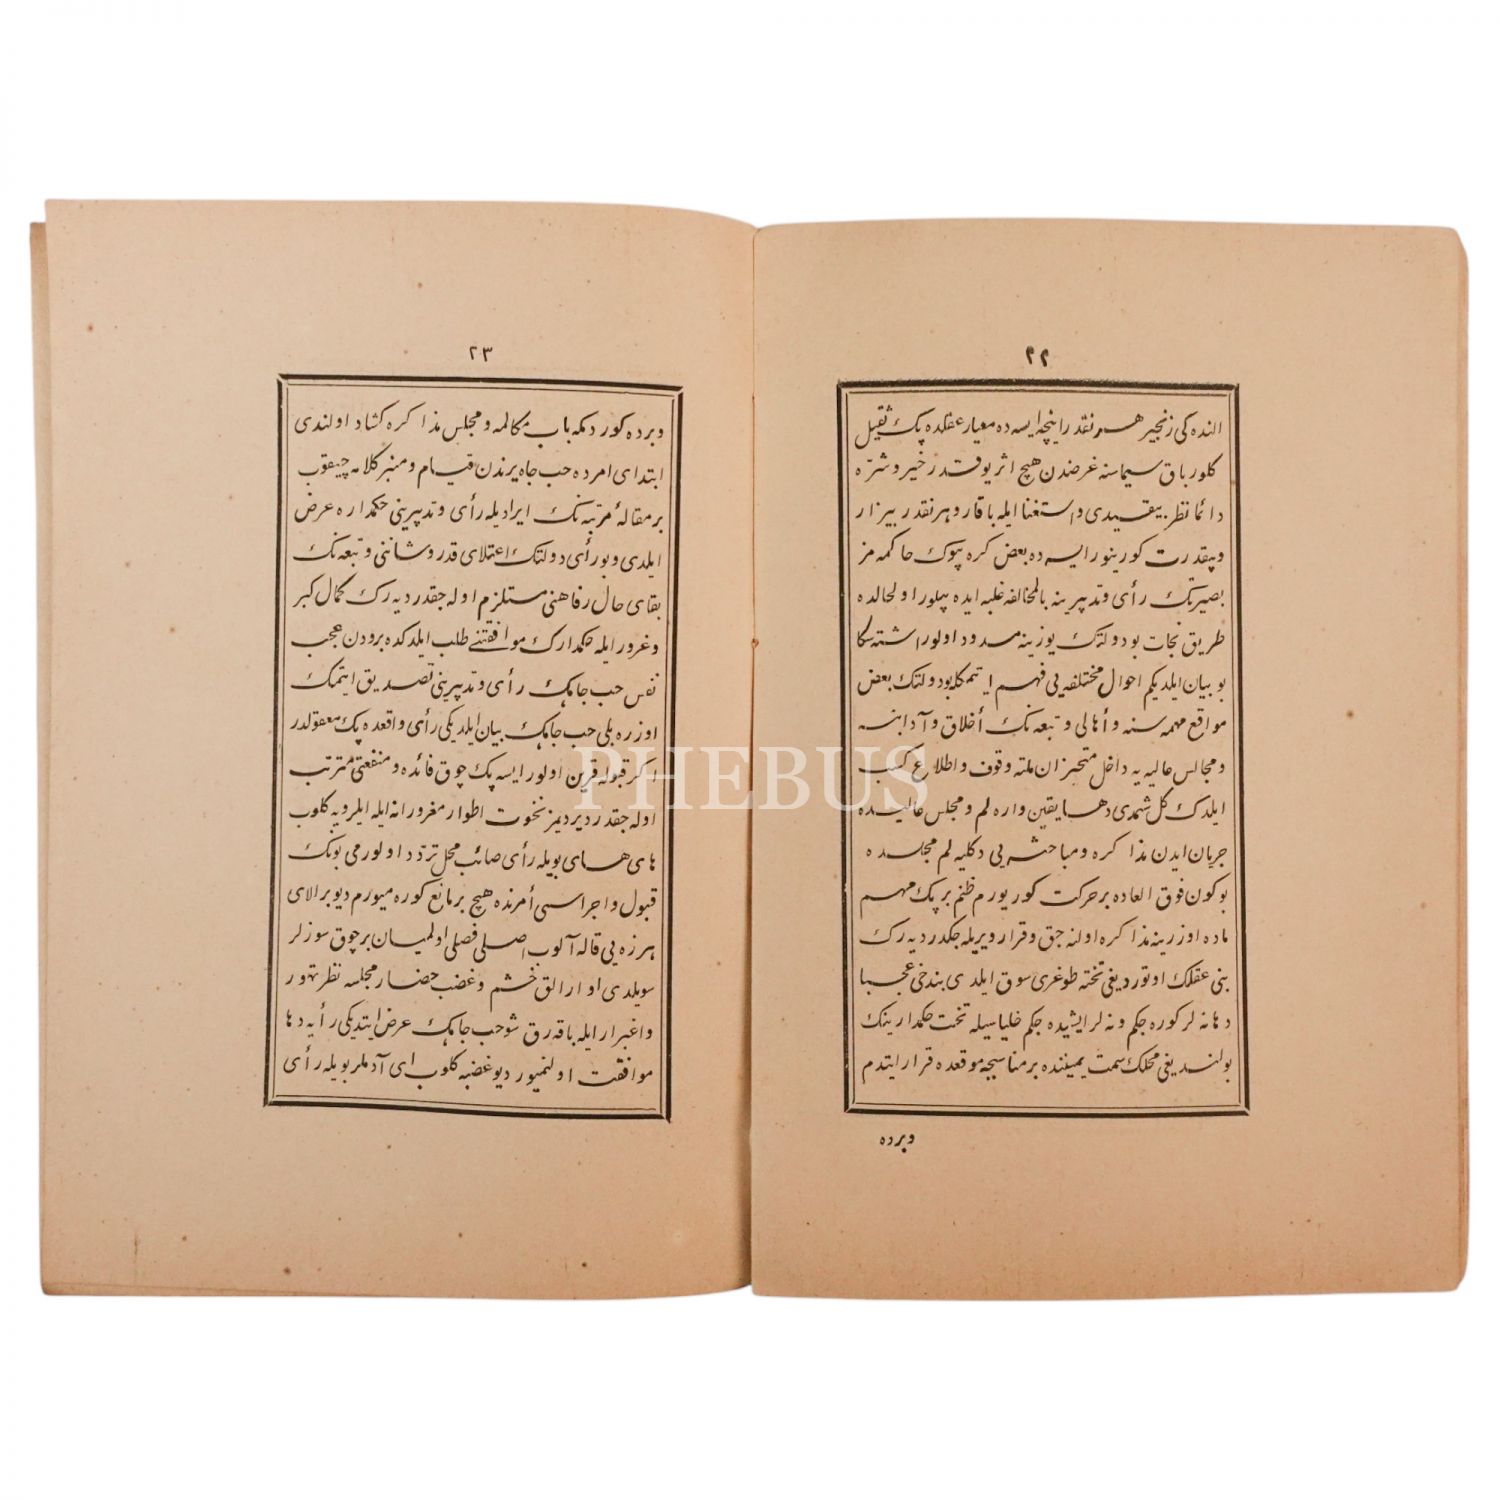 ٢٢
النده کی زنجیر هر نقدر اینجه ایسه ده معیار عقلده پک ثقیل
کلور باق سیماسنه غرضدن هیچ اثر یوقدر خیر و شره
دائما نظر بیقیدی و استغنا ایله باقار و هر نقدر بیزار
و بیقدرت کورینور ایسه ده بعض کره بیوک حاکمه مز
بصیرتک رأی و تدبیرینه بالمخالفه غلبه ایده بیلور اولحالده
طریق نجات بو دولتک یوزینه مسدود اولور اشته سکا
بو بیان ایلدیکم احوال مختلفه یی فهم ایتمکله بو دولتک بعض
مواقع مهمه سنه و أهالی و تبعه نک أخلاق و آدابنه
و مجالس عالیه یه داخل متحیزان ملته وقوف و اطلاع کسب
ایلدک کل شمدی دها یقین واره لم و مجلس عالیده
جریان ایدن مذاکره و مباحثه یی دکلیه لم مجلسده
بو کون فوق العاده بر حرکت کوریورم ظنم بر پک مهم
ماده اوزرینه مذاکره اولنه جق و قرار ویریله جکدر دیه رک
بنی عقلک اوتوردیغی تخته طوغری سوق ایلدی بندخی عجبا
دها نه لر کوره جکم و نه لر ایشیده جکم خلیاسیله تخت حکمدارینک
بولندیغی محلک سمت یمیننده بر مناسبجه موقعده قرار ایتدم
وبرده
٢٣
وبرده کوردمکه باب مکالمه و مجلس مذاکره کشاد اولندی
ابتدای امرده حب جاه یرندن قیام و منبر کلامه چیقوب
بر مقالهٔ مرتبه نک ایرادیله رأی و تدبیرینی حکمداره عرض
ایلدی و بو رأی دولتک اعتلای قدر و شاننی و تبعه نک
بقای حال رفاهنی مستلزم اوله جقدر دیه رک کمال کبر
و غرور ایله حکمدارک موافقتنی طلب ایلدکده برودن عجب
نفس حب جاهک رأی و تدبیرینی تصدیق ایتمک
اوزره بلی حب جاهک بیان ایلدیکی رأی واقعده پک معقولدر
اکر قبوله قرین اولور ایسه پک چوق فائده و منفعتی مترتب
اوله جقدر دیر دیمز نخوت اطوار مغرورانه ایله ایلرویه کلوب
های های بویله رأی صائب محل تردد اولورمی بونک
قبول و اجراسی أمرنده هیچ بر مانع کوره میورم دیو بر الای
هرزه یی قاله آلوب اصلی فصلی اولمیان بر چوق سوزلر
سویلدی او ارالق خشم و غضب حضار مجلسه نظر تهور
و اغبرار ایله باقه رق شو حب جاهک عرض ایتدیکی رأیه دها
موافقت اولنمیور دیو غضبه کلوب ای آدملر بویله رأی